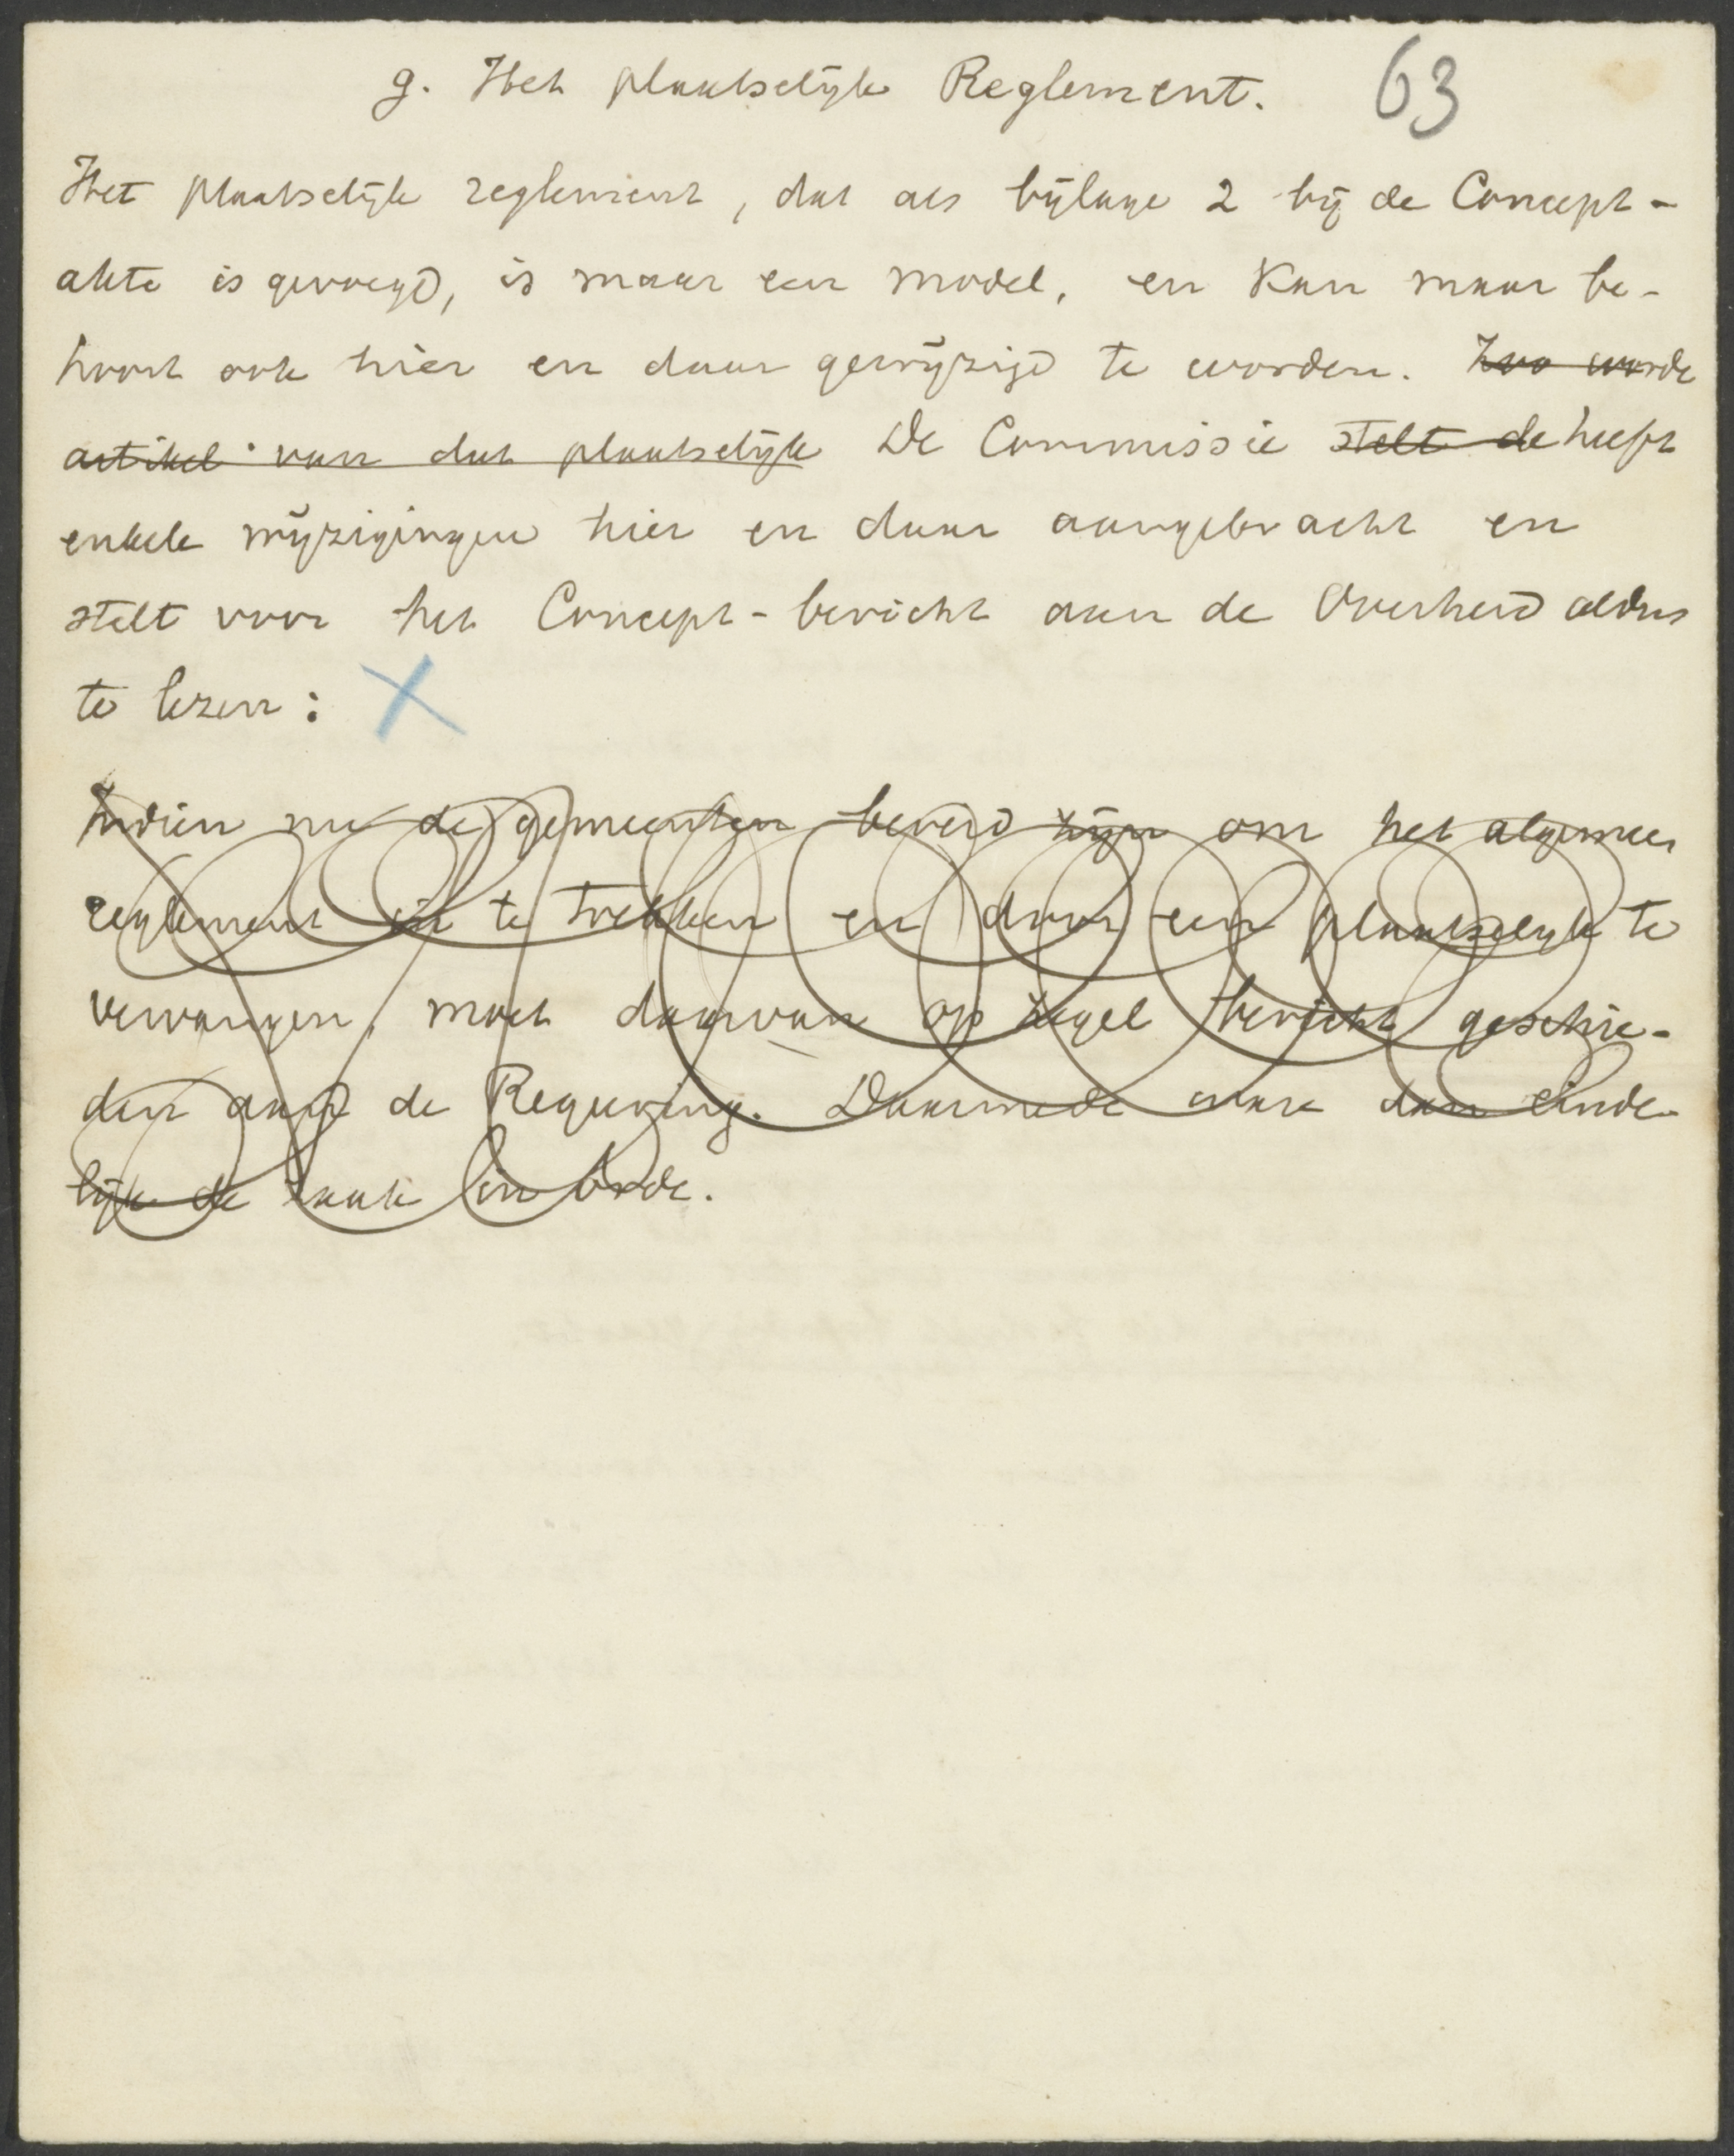 g. Het plaatselijk Reglement. 63
Het plaatselijk reglement, dat als bijlage 2 bij de Concept-
akte is gevoegd, is maar een model, en kan maar be-
hoort ook hier en daar gewijzigd te worden. Zoo worde
artikel van dat plaatselijk De Commissie stelt de heeft
enkele wijzigingen hier en daar aangebracht en
stelt voor het Concept-bericht aan de Overheid aldus
te lezen: X
Indien nu de gemeenten bereid zijn om het algemeen
reglement in te trekken en door een plaatselijk te
vervangen, moet daarvan op zegel bericht geschie-
den aan de Regeering. Daarmede ware dan einde-
lijk de zaak in orde.